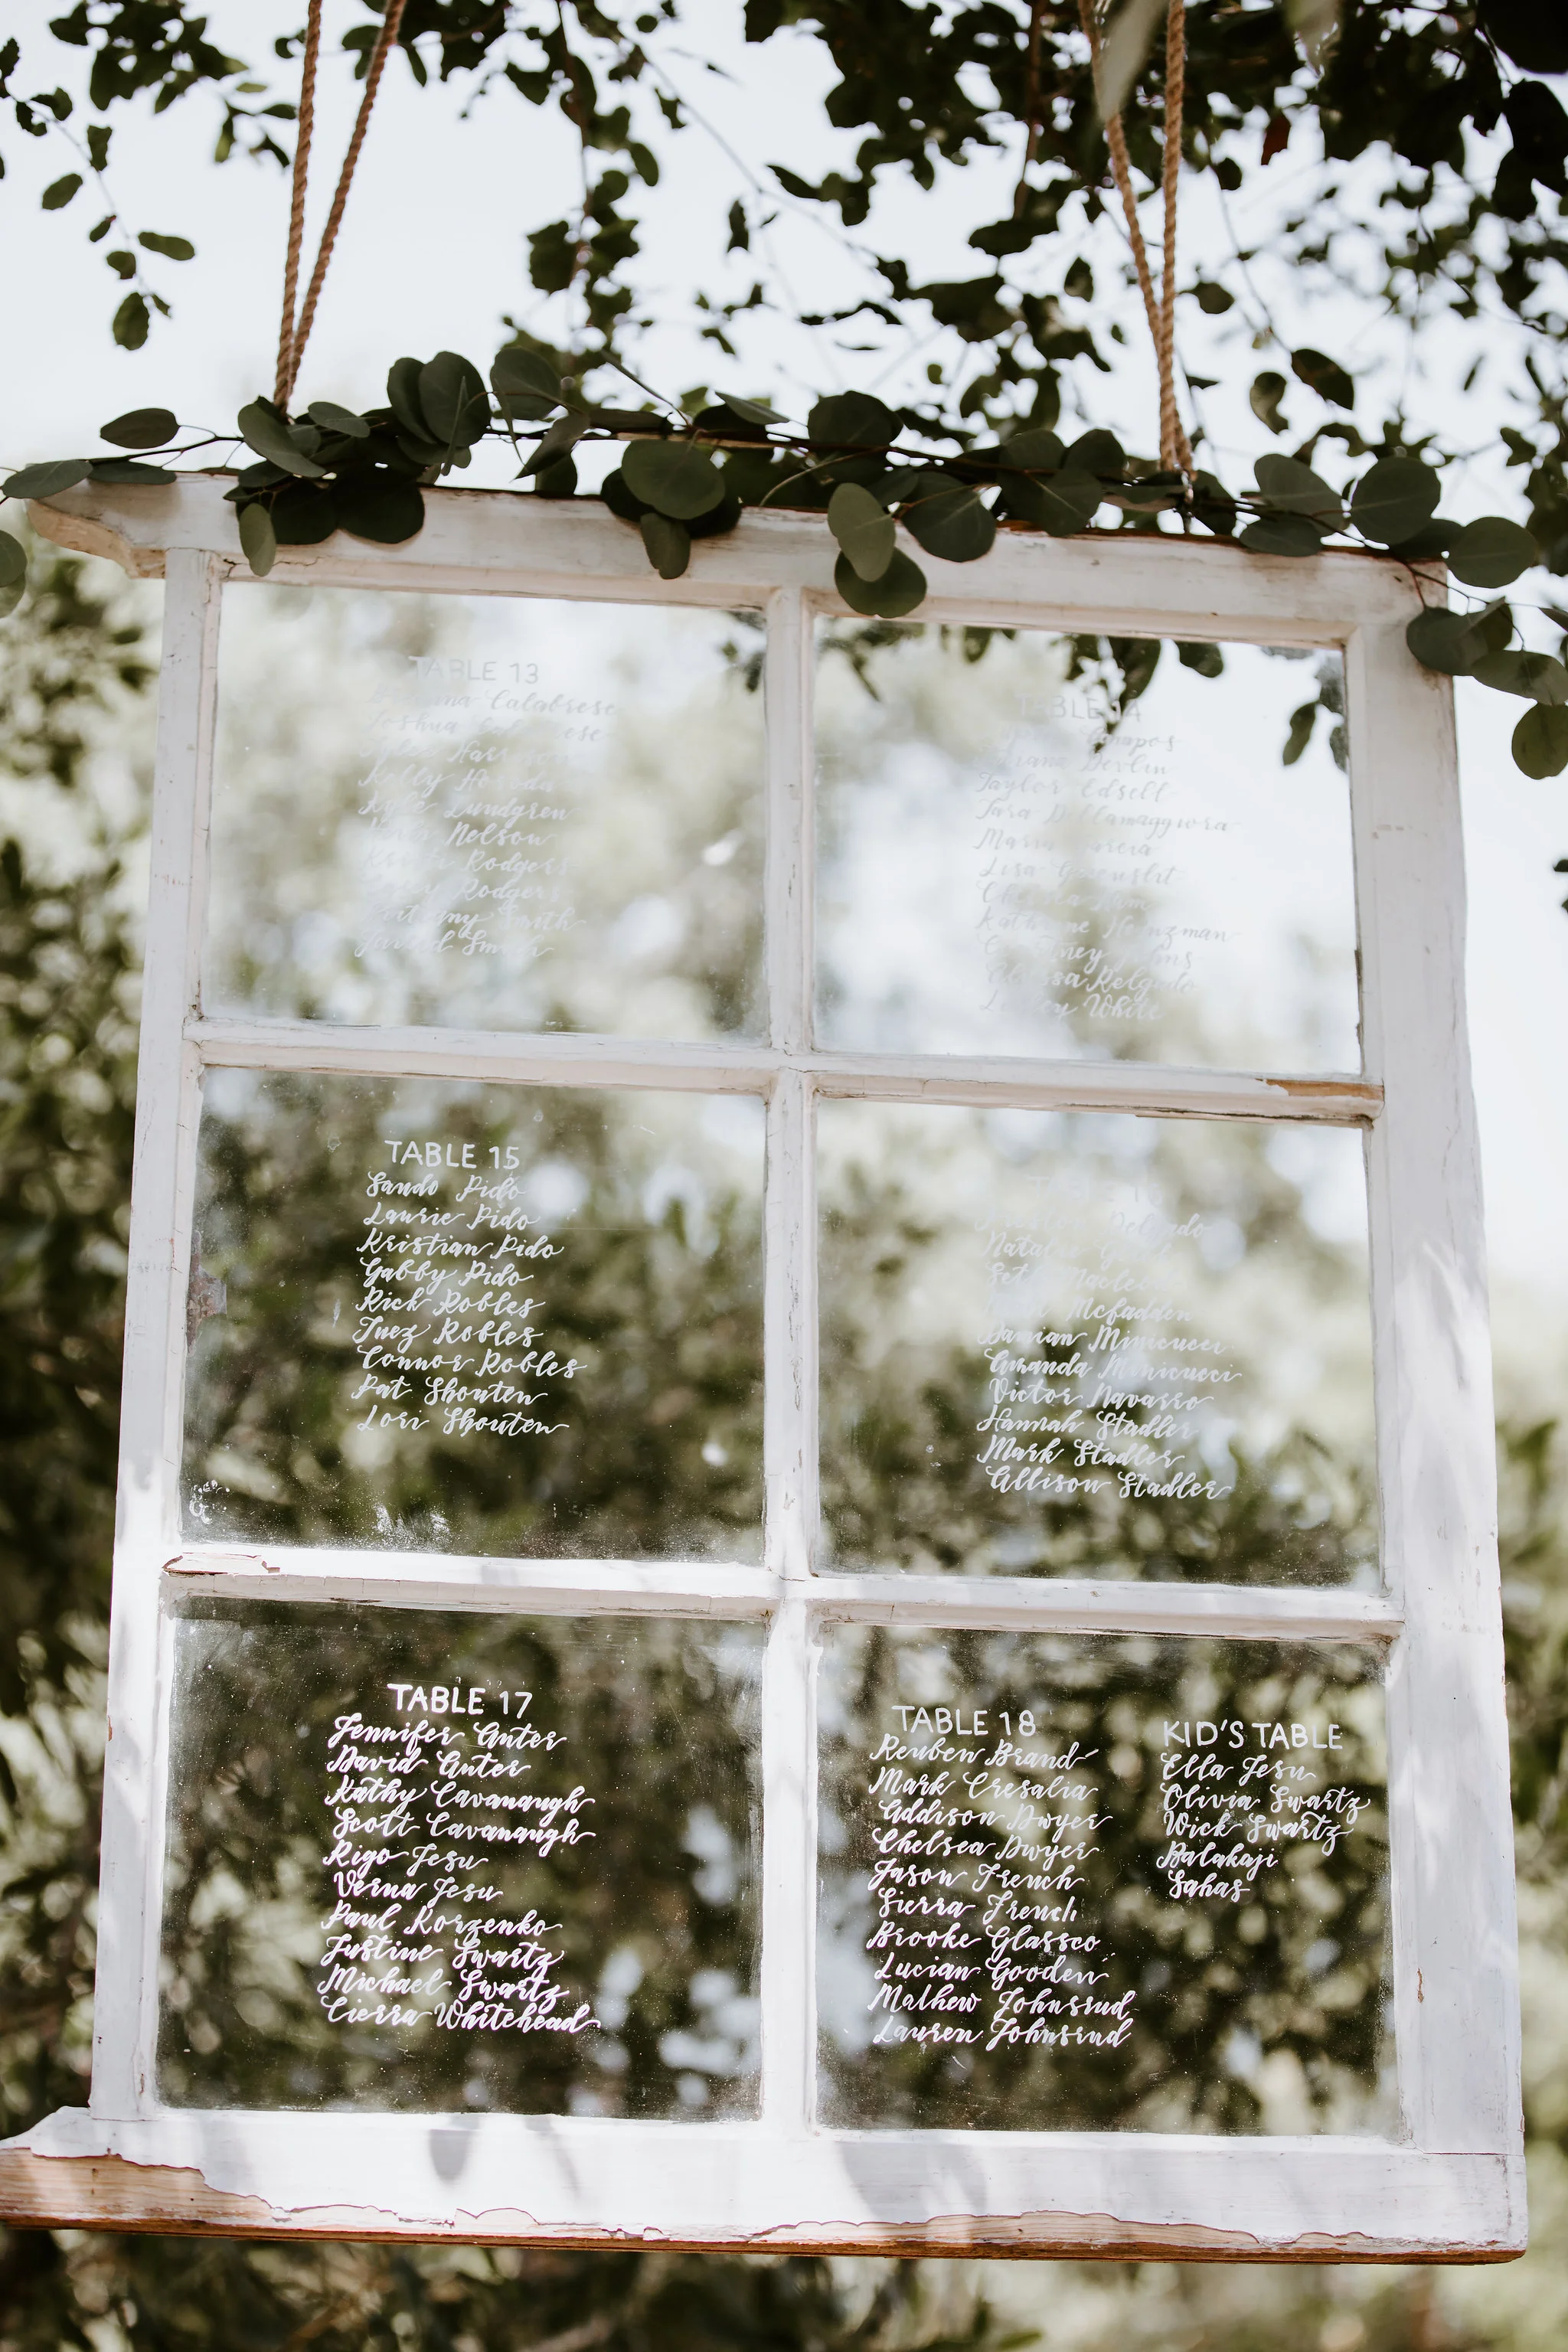 TABLE 13
Calabrese
Joshua Calabrese
Kelly
Kyle Lundgren
Nelson
Rodgers
Rodgers
Smith
Jarred Smith
TABLE 14
Campos
Devlin
Taylor Edsell
Tara Dellamaggiora
Maria Garcia
Lisa
Chelsea
Katherine Heinzman
Courtney
Alyssa Delgado
White
TABLE 15
Sando Pido
Laurie Pido
Kristian Pido
Gabby Pido
Rick Robles
Inez Robles
Connor Robles
Pat Shouten
Lori Shouten
Delgado
Mcfadden
Damian Minicucci
Amanda Minicucci
Victor Navarro
Hannah Stadler
Mark Stadler
Allison Stadler
TABLE 17
Jennifer Anter
David Anter
Kathy Cavanaugh
Scott Cavanaugh
Rigo Jesu
Verna Jesu
Paul Korzenko
Justine Swartz
Michael Swartz
Cierra Whitehead
TABLE 18
Reuben Brand
Mark Cresalia
Addison Dwyer
Chelsea Dwyer
Jason French
Sierra French
Brooke Glassco
Lucian Gooden
Mathew Johnsrud
Lauren Johnsrud
KID'S TABLE
Ella Jesu
Olivia Swartz
Wick Swartz
Balakaji
Sahas